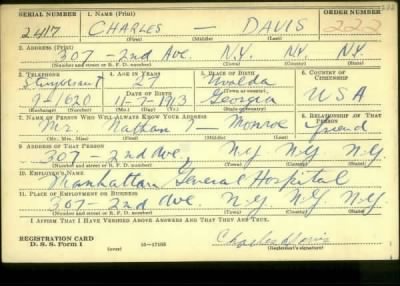 SERIAL NUMBER 1. NAME (Print) ORDER NUMBER
2417 CHARLES — DAVIS 222
(First) (Middle) (Last)
2. ADDRESS (Print)
307 - 2nd Ave. N.Y. N.Y. N.Y.
(Number and street or R. F. D. number) (Town) (County) (State)
3. TELEPHONE 4. AGE IN YEARS 5. PLACE OF BIRTH 6. COUNTRY OF CITIZENSHIP
Stuyvesant 27 Uvalda
DATE OF BIRTH (Town or county)
9-1620 11-7-1913 Georgia USA
(Exchange) (Number) (Mo.) (Day) (Yr.) (State or country)
7. NAME OF PERSON WHO WILL ALWAYS KNOW YOUR ADDRESS 8. RELATIONSHIP OF THAT PERSON
Mr. Nathan — Monroe friend
(Mr., Mrs., Miss) (First) (Middle) (Last)
9. ADDRESS OF THAT PERSON
307 - 2nd Ave. N-Y N-Y N-Y
(Number and street or R. F. D. number) (Town) (County) (State)
10. EMPLOYER'S NAME
Manhattan General Hospital
11. PLACE OF EMPLOYMENT OR BUSINESS
307 - 2nd Ave. N-Y N.Y. N.Y.
(Number and street or R. F. D. number) (Town) (County) (State)
I AFFIRM THAT I HAVE VERIFIED ABOVE ANSWERS AND THAT THEY ARE TRUE.
REGISTRATION CARD
D. S. S. Form 1 (over) 16—17105 Charles Davis
(Registrant's signature)